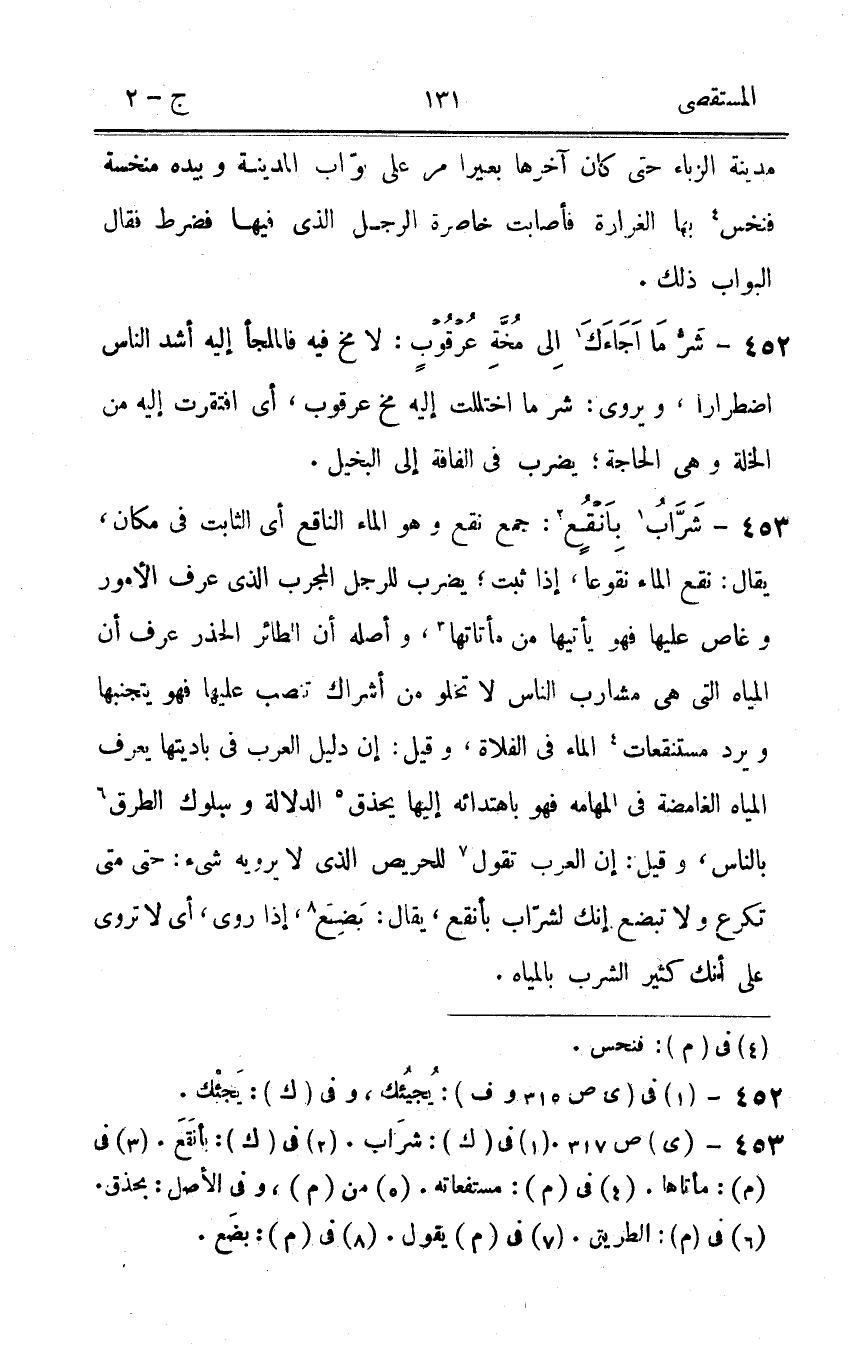 المستقصى ١٣١ ج - ٢
مدينة الزباء حتى كان آخرها بعيرا مر على بوّاب المدينة و بيده منخسة
فنخس٤ بها الغرارة فأصابت خاصرة الرجل الذى فيها فضرط فقال
البواب ذلك .
٤٥٢ - شَرٌّ مَا اَجَاءَكَ١ اِلى مُخَّةِ عُرْقُوْبٍ : لا مخ فيه فالملجأ إليه أشد الناس
اضطرارا ، و يروى : شر ما اختللت إليه مخ عرقوب ، أى افتقرت إليه من
الخلة و هى الحاجة ؛ يضرب فى الفاقة إلى البخيل .
٤٥٣ - شَرَّابُ١ بِاَنْقُعٍ٢ : جمع نقع و هو الماء الناقع أى الثابت فى مكان ،
يقال : نقع الماء نقوعا ، إذا ثبت ؛ يضرب للرجل المجرب الذى عرف الأمور
و غاص عليها فهو يأتيها من مأتاتها٣ ، و أصله أن الطائر الحذر عرف أن
المياه التى هى مشارب الناس لا تخلو من أشراك تنصب عليها فهو يتجنبها
و يرد مستنقعات٤ الماء فى الفلاة ، و قيل : إن دليل العرب فى باديتها يعرف
المياه الغامضة فى المهامه فهو باهتدائه إليها يحذق٥ الدلالة و سلوك الطرق٦
بالناس ، و قيل : إن العرب تقول٧ للحريص الذى لا يرويه شىء : حتى متى
تكرع و لا تبضع إنك لشرّاب بأنقع ، يقال : بَضِعَ٨ ، إذا روى ، أى لا تروى
على أنك كثير الشرب بالمياه .
(٤) فى ( م ) : فنحس .
٤٥٢ - (١) فى ( ى ص ٣١٥ و ف ) : يُجيئُك ، و فى ( ك ) : يَجئْك .
٤٥٣ - (ى) ص ٣١٧ .(١) فى ( ك ) : شرَاب . (٢) فى ( ك ) : بأنقَعَ . (٣) فى
(م) : مأتاها . (٤) فى ( م ) : مستفعاته . (٥) من ( م ) ، و فى الأصل : بحذق.
(٦) فى (م) : الطريق . (٧) فى ( م ) يقول . (٨) فى ( م ) : بضَع .